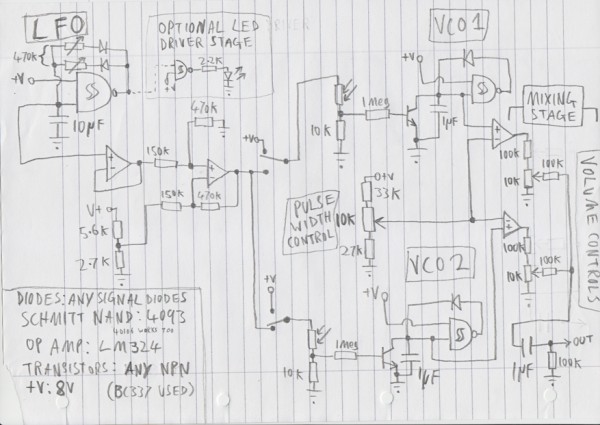 LFO
OPTIONAL LED DRIVER
DRIVER STAGE
VCO1
470K
2.2K
+V
+V
10µF
470K
+V
+V
1 MEG
10K
1µF
MIXING
STAGE
100K
100K
10K
150K
150K
470K
V+
5.6K
2.7K
PULSE
WIDTH
CONTROL
O+V
33K
10K
27K
VCO2
+V
+V
VOLUME CONTROLS
100K
100K
10K
DIODES: ANY SIGNAL DIODES
SCHMITT NAND: 4093
OP AMP: LM324
TRANSISTORS: ANY NPN
+V: 8V (BC337 USED)
1MEG
10K
1µF
1µF
OUT
100K